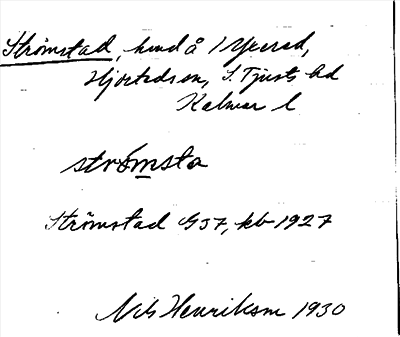 Strömstad, hmd å 1 Yxered,
Hjorteds sn, S. Tjusts hd
Kalmar l
strömsta
Strömstad G57, kb 1927
Nils Henriksson 1930